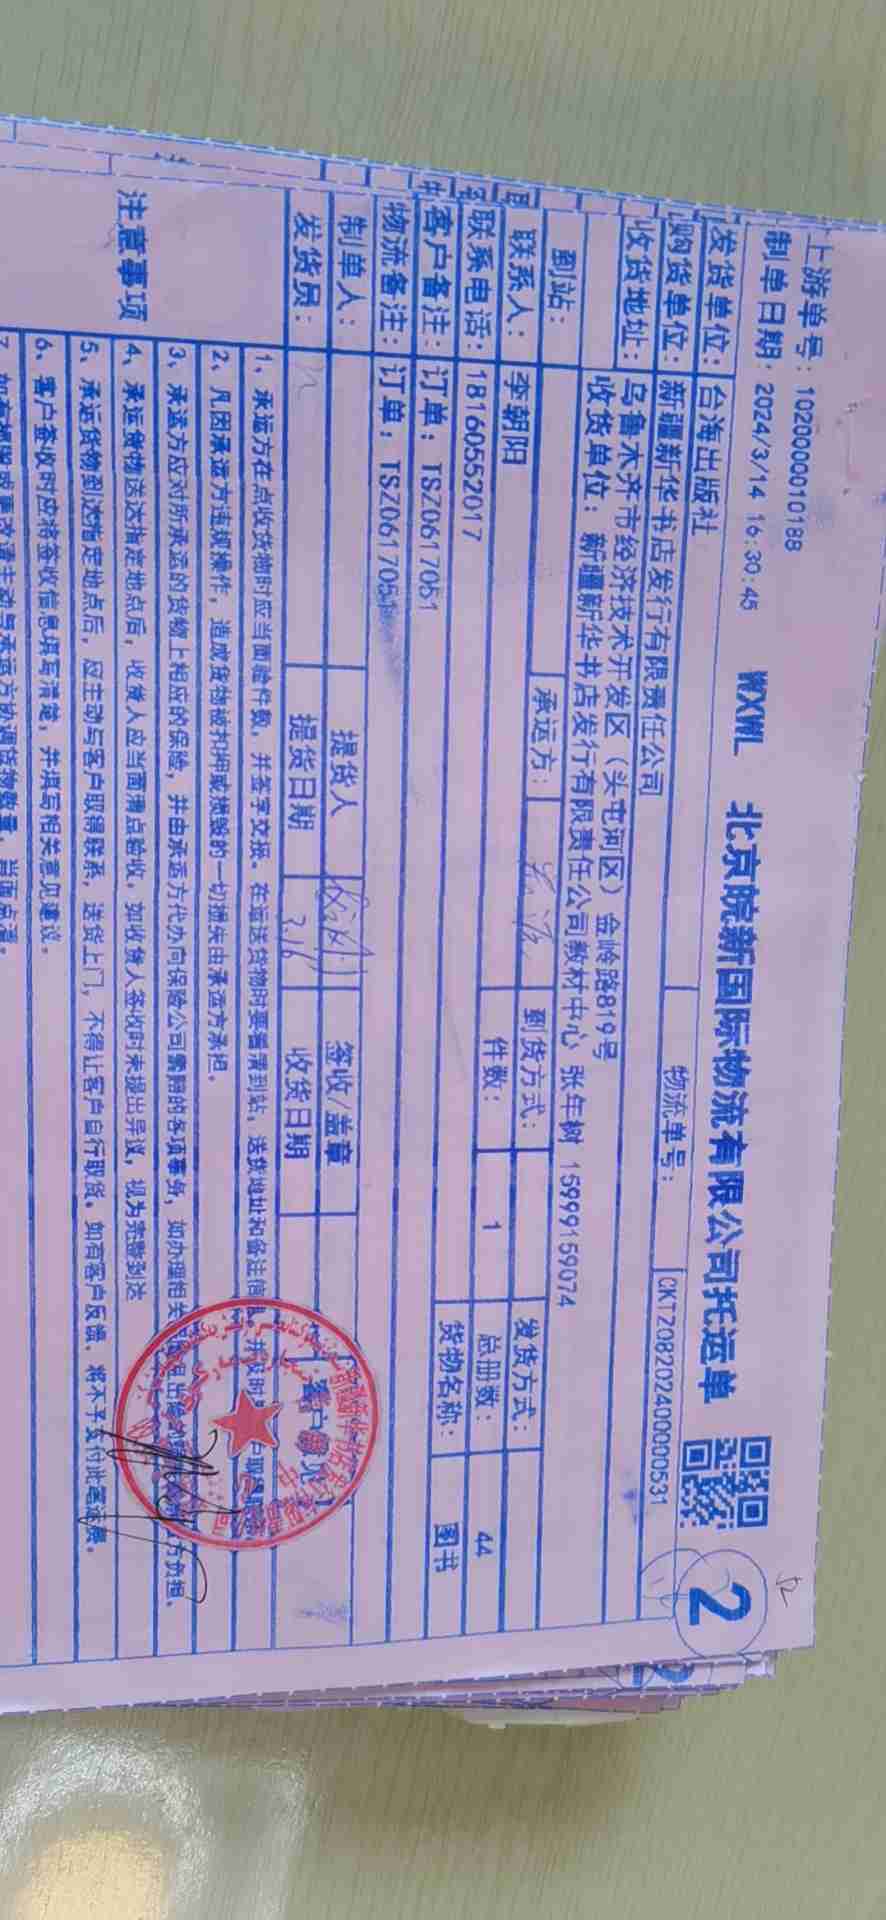 上游单号：102000010188
制单日期：2024/3/14 16:30:45
WXWL 北京皖新国际物流有限公司托运单
2
发货单位：台海出版社
物流单号：CKTZ082024000000531
购货单位：新疆新华书店发行有限责任公司
收货地址：乌鲁木齐市经济技术开发区（头屯河区）金岭路819号
收货单位：新疆新华书店发行有限责任公司教材中心 张年树 15999159074
到站：
承运方：
到货方式：
发货方式：
联系人：李朝阳
件数：1
总册数：44
联系电话：18160552017
货物名称：图书
客户备注：订单：TSZ0617051
物流备注：订单：TSZ0617051
制单人：
提货人
签收/盖章
客户意见
发货员：
提货日期 3.16
收货日期
注意事项
1、承运方在点收货物时应当面验件数，并签字交接。在运送货物时要看清到站，送货地址和备注信息
2、凡因承运方违规操作，造成货物被扣押或损毁的一切损失由承运方承担。
3、承运方应对所承运的货物上相应的保险，并由承运方代办向保险公司索赔的各项事务，如办理相关 方负担。
4、承运货物送达指定地点后，收货人应当面清点验收，如收货人签收时未提出异议，视为完整到达
5、承运货物到达指定地点后，应主动与客户取得联系，送货上门，不得让客户自行取货。如有客户反馈，将不予支付此笔运费。
6、客户签收时应将签收信息填写清楚，并填写相关意见建议。